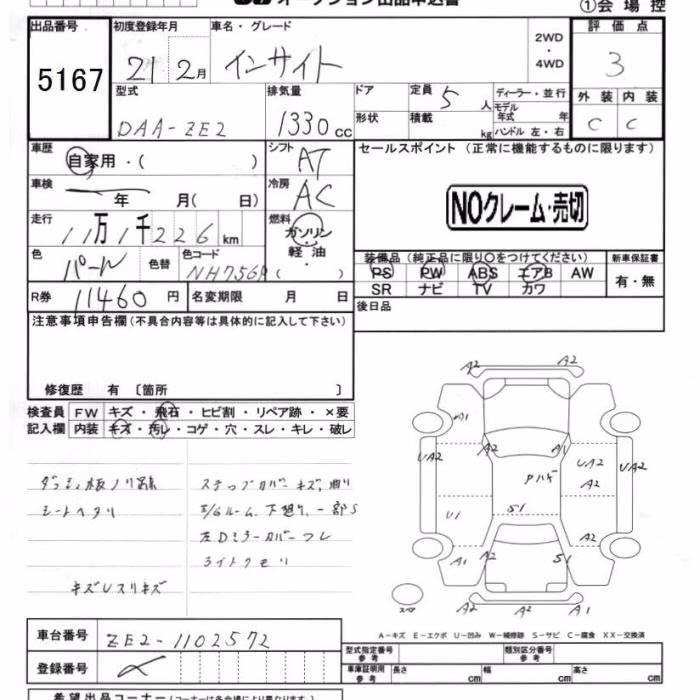 オークション出品申込書
①会場控
出品番号
5167
初度登録年月
21 2月
車名・グレード
インサイト
2WD
・
4WD
評価点
3
型式
DAA-ZE2
排気量
1330 cc
ドア
形状
定員 5 人
積載 kg
ディーラー・並行
モデル
年式 年
ハンドル 左・右
外装 内装
C C
車歴
自家用・( )
シフト
AT
セールスポイント (正常に機能するものに限ります)
NOクレーム・売切
車検
年 月( 日)
冷房
AC
走行
11万1千226km
燃料
ガソリン
・
軽油
( ・ )
色
パール
色替
色コード
NH756P
装備品 (純正品に限り〇をつけてください)
PS PW ABS エアB AW
SR ナビ TV カワ
新車保証書
有・無
R券 11460 円
名変期限 月 日
後日品
注意事項申告欄(不具合内容等は具体的に記入して下さい)
修復歴 有 〔箇所 〕
検査員
記入欄
FW キズ・飛石・ヒビ割・リペア跡・×要
内装 キズ・汚レ・コゲ・穴・スレ・キレ・破レ
シートヘタリ
キズUスリキズ
ステップカバーキズ
左Dミラーカバーワレ
ライトクモリ
A2 A2
A1
UA2 A2 A1 UA2 UA2
Pハゲ A2
U1 S1
A2
A1 A2 S1 A2
スペア A2 A2 A1
A-キズ E-エクボ U-凹み W-補修跡 S-サビ C-腐食 XX-交換済
車台番号 ZE2-1102572
登録番号
型式指定番号
参考
類別区分番号
参考
車庫証明用
参考
長さ cm 幅 cm 高さ cm
希望出品コーナー(コーナーは各会場により異なります。)